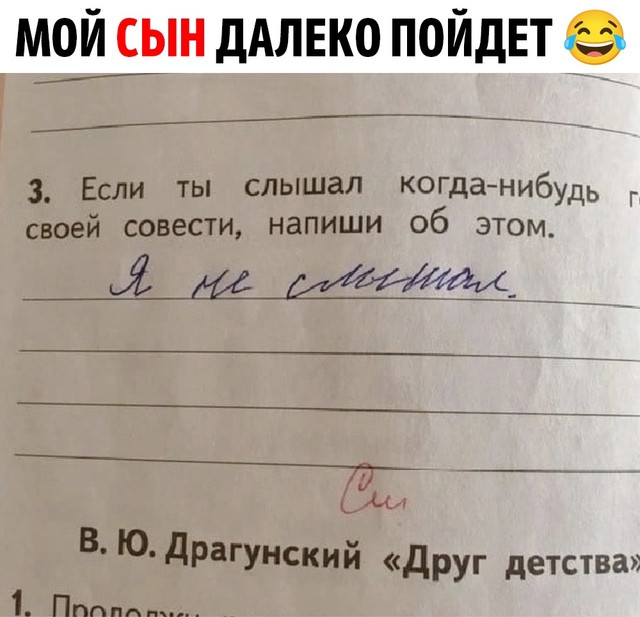 МОЙ СЫН ДАЛЕКО ПОЙДЕТ
3. Если ты слышал когда-нибудь
своей совести, напиши об этом.
Я не слышал.
См
В. Ю. Драгунский «Друг детства»
1.